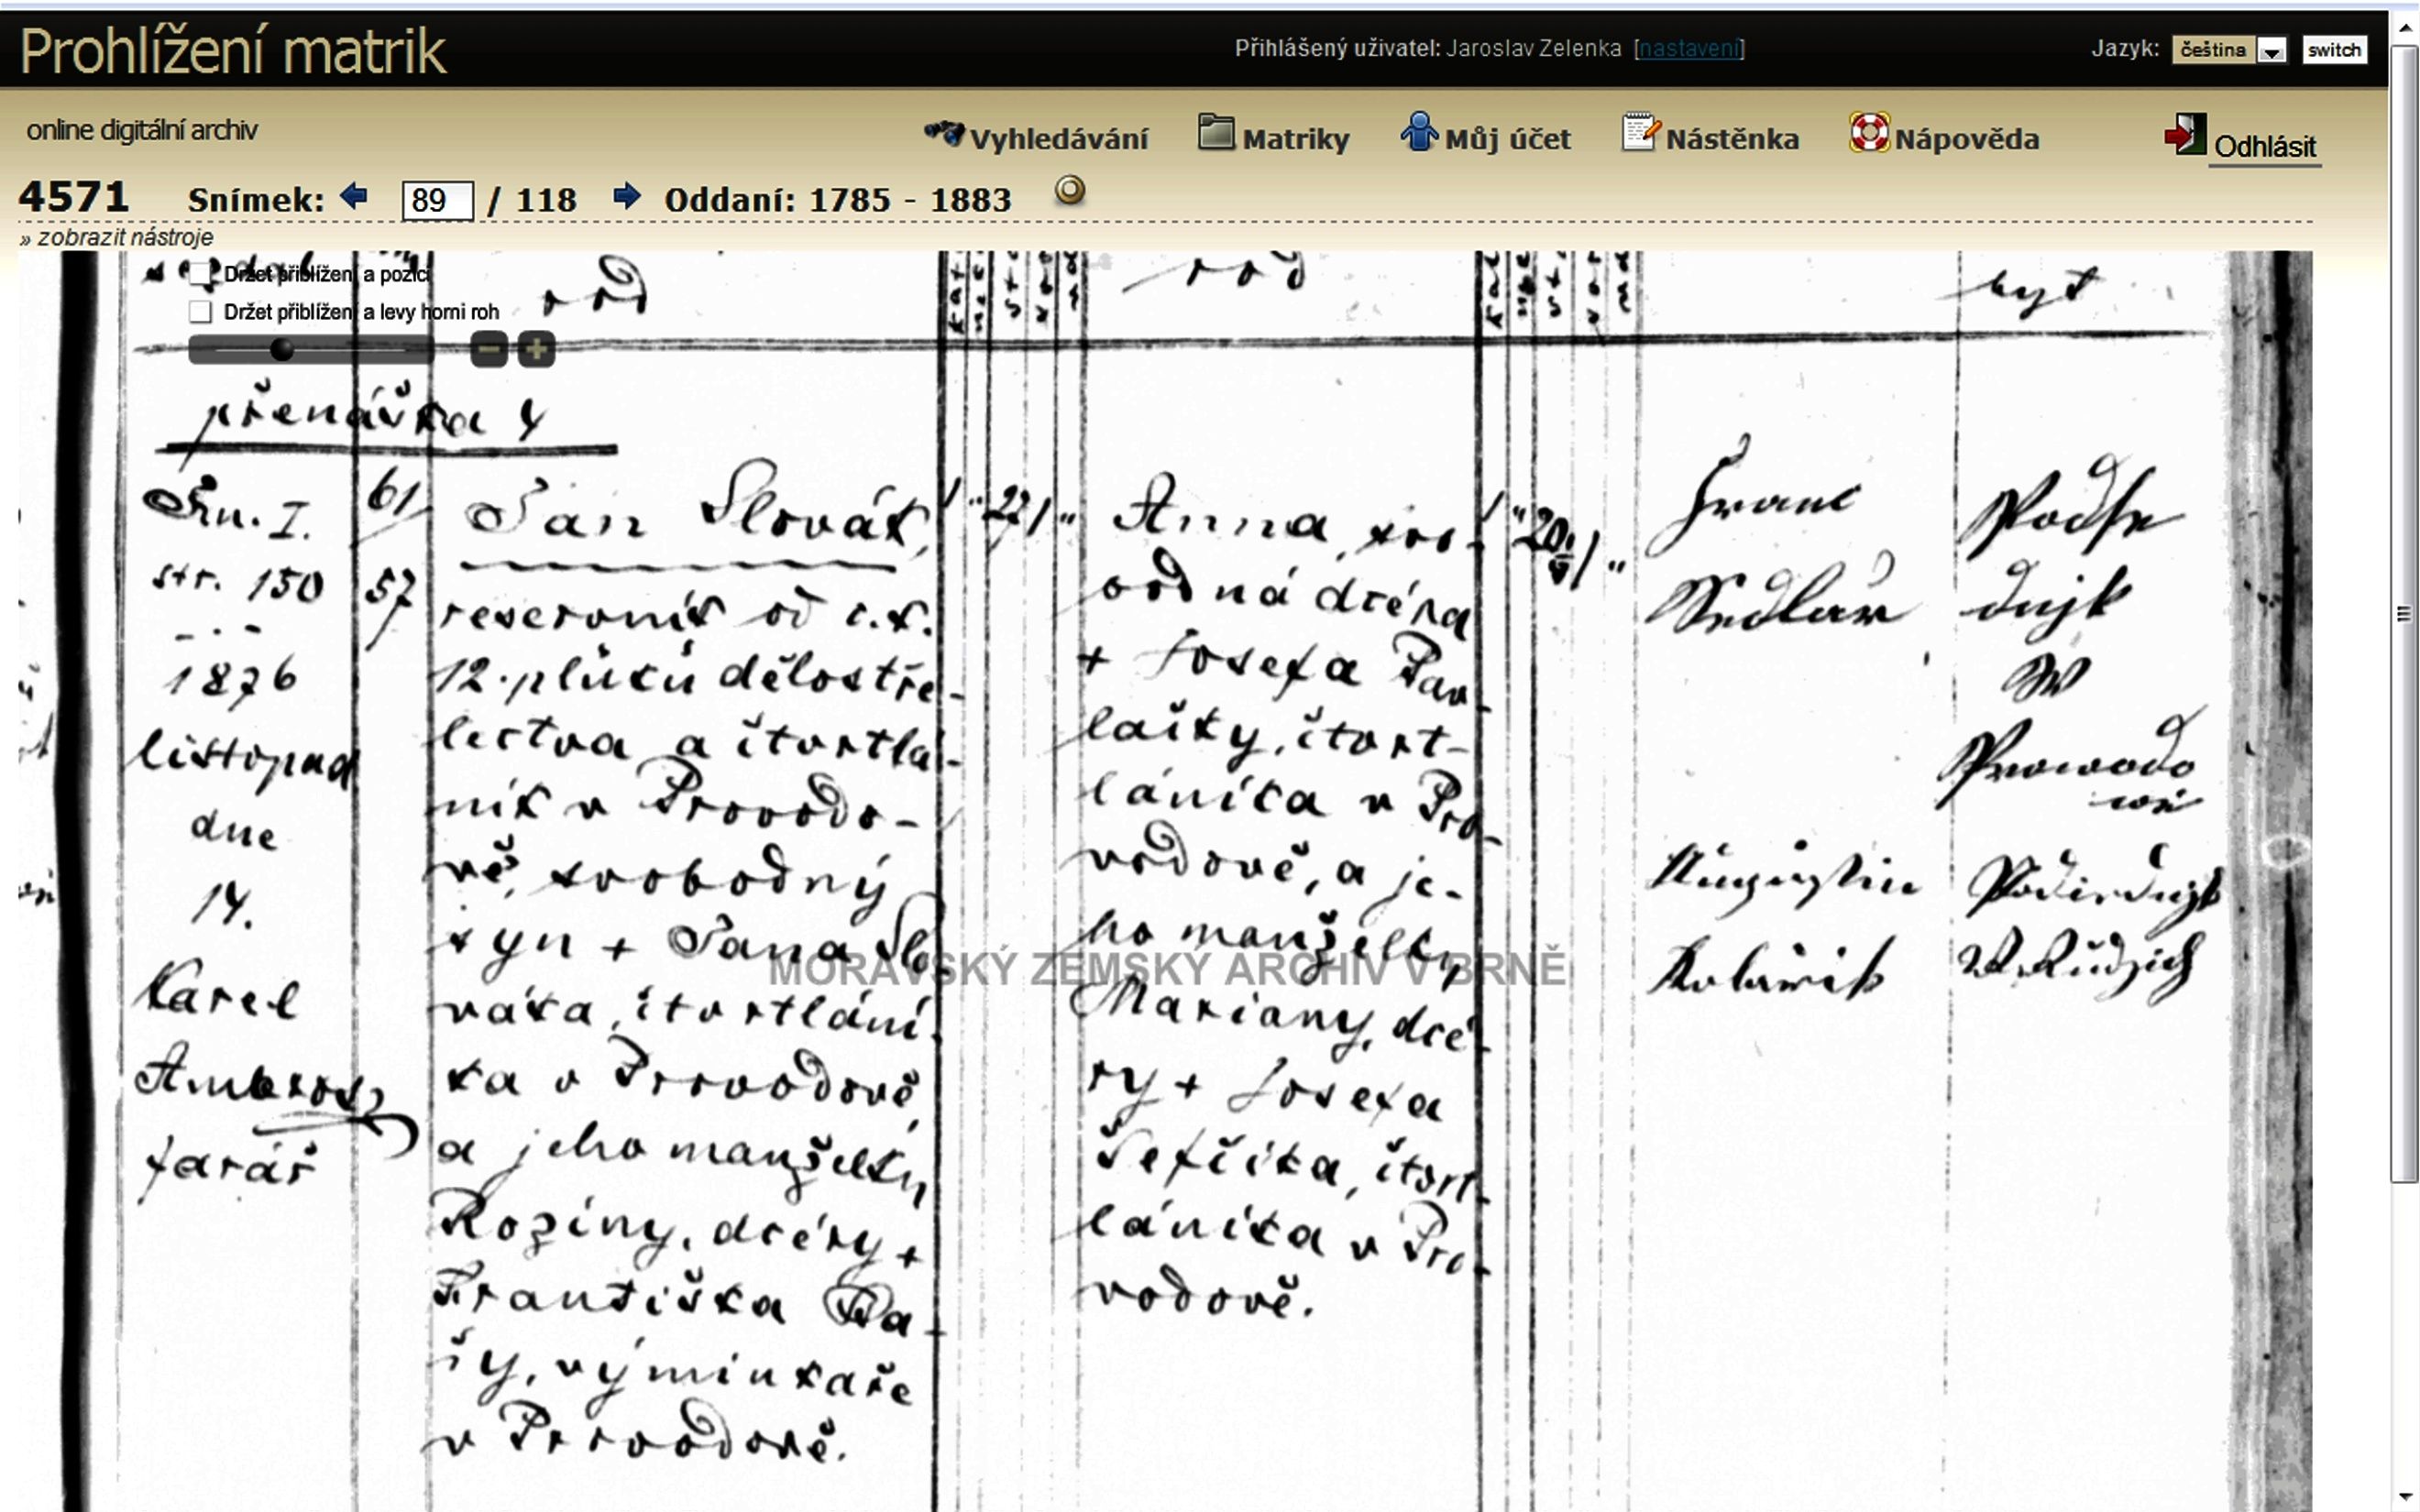 Prohlížení matrik
Přihlášený uživatel: Jaroslav Zelenka [nastavení]
Jazyk: čeština switch
online digitální archiv
Vyhledávání Matriky Můj účet Nástěnka Nápověda Odhlásit
4571 Snímek: 89 / 118 Oddaní: 1785 - 1883
» zobrazit nástroje
Držet přiblížení a pozici
Držet přiblížení a levy horni roh
rod
rod
byt
přenáška 4
I.
str. 150
1876
listopad
dne
14.
Karel
Ambros
farář
61
57
Jan Slovák,
reservník od c.k.
12. pluku dělostře-
lectva a čtvrtlá-
ník v Provodo-
vě, svobodný
syn + Jana Slo-
váka, čtvrtlání-
ka v Provodově
a jeho manželky
Roziny, dcéry +
Františka
výminkaře
v Provodově.
22
Anna, svo-
bodná dcéra
+ Josefa Pav-
lačky, čtvrt-
láníka v Pro-
vodově, a je-
ho manželky
Mariany, dcé-
ry + Josefa
Šefčíka, čtvrt-
láníka v Pro-
vodově.
20
Franc
Sedlař
Podse
dnjk
W
Prowodo
wě
Augustin
Kolařik
MORAVSKÝ ZEMSKÝ ARCHIV V BRNĚ